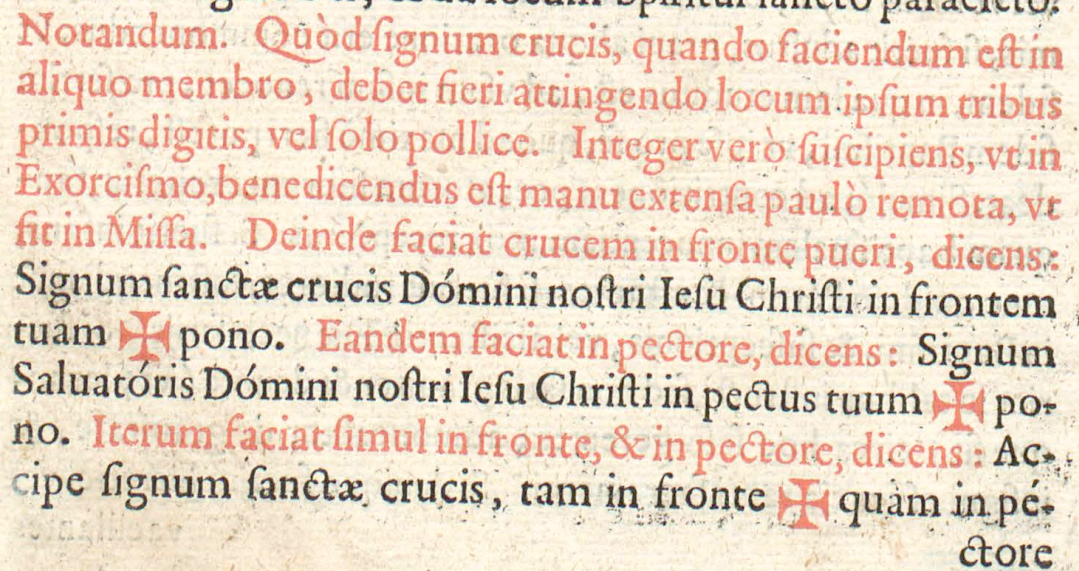 Spiritui sancto paracleto.
Notandum. Quòd ſignum crucis, quando faciendum eſt in
aliquo membro, debet fieri attingendo locum ipſum tribus
primis digitis, vel ſolo pollice. Integer verò ſuſcipiens, vt in
Exorciſmo, benedicendus eſt manu extenſa paulò remota, vt
fit in Miſſa. Deinde faciat crucem in fronte pueri, dicens:
Signum ſanctæ crucis Dómini noſtri Ieſu Chriſti in frontem
tuam ✠ pono. Eandem faciat in pectore, dicens: Signum
Saluatóris Dómini noſtri Ieſu Chriſti in pectus tuum ✠ po-
no. Iterum faciat ſimul in fronte, & in pectore, dicens: Ac-
cipe ſignum ſanctæ crucis, tam in fronte ✠ quàm in pé-
ctore